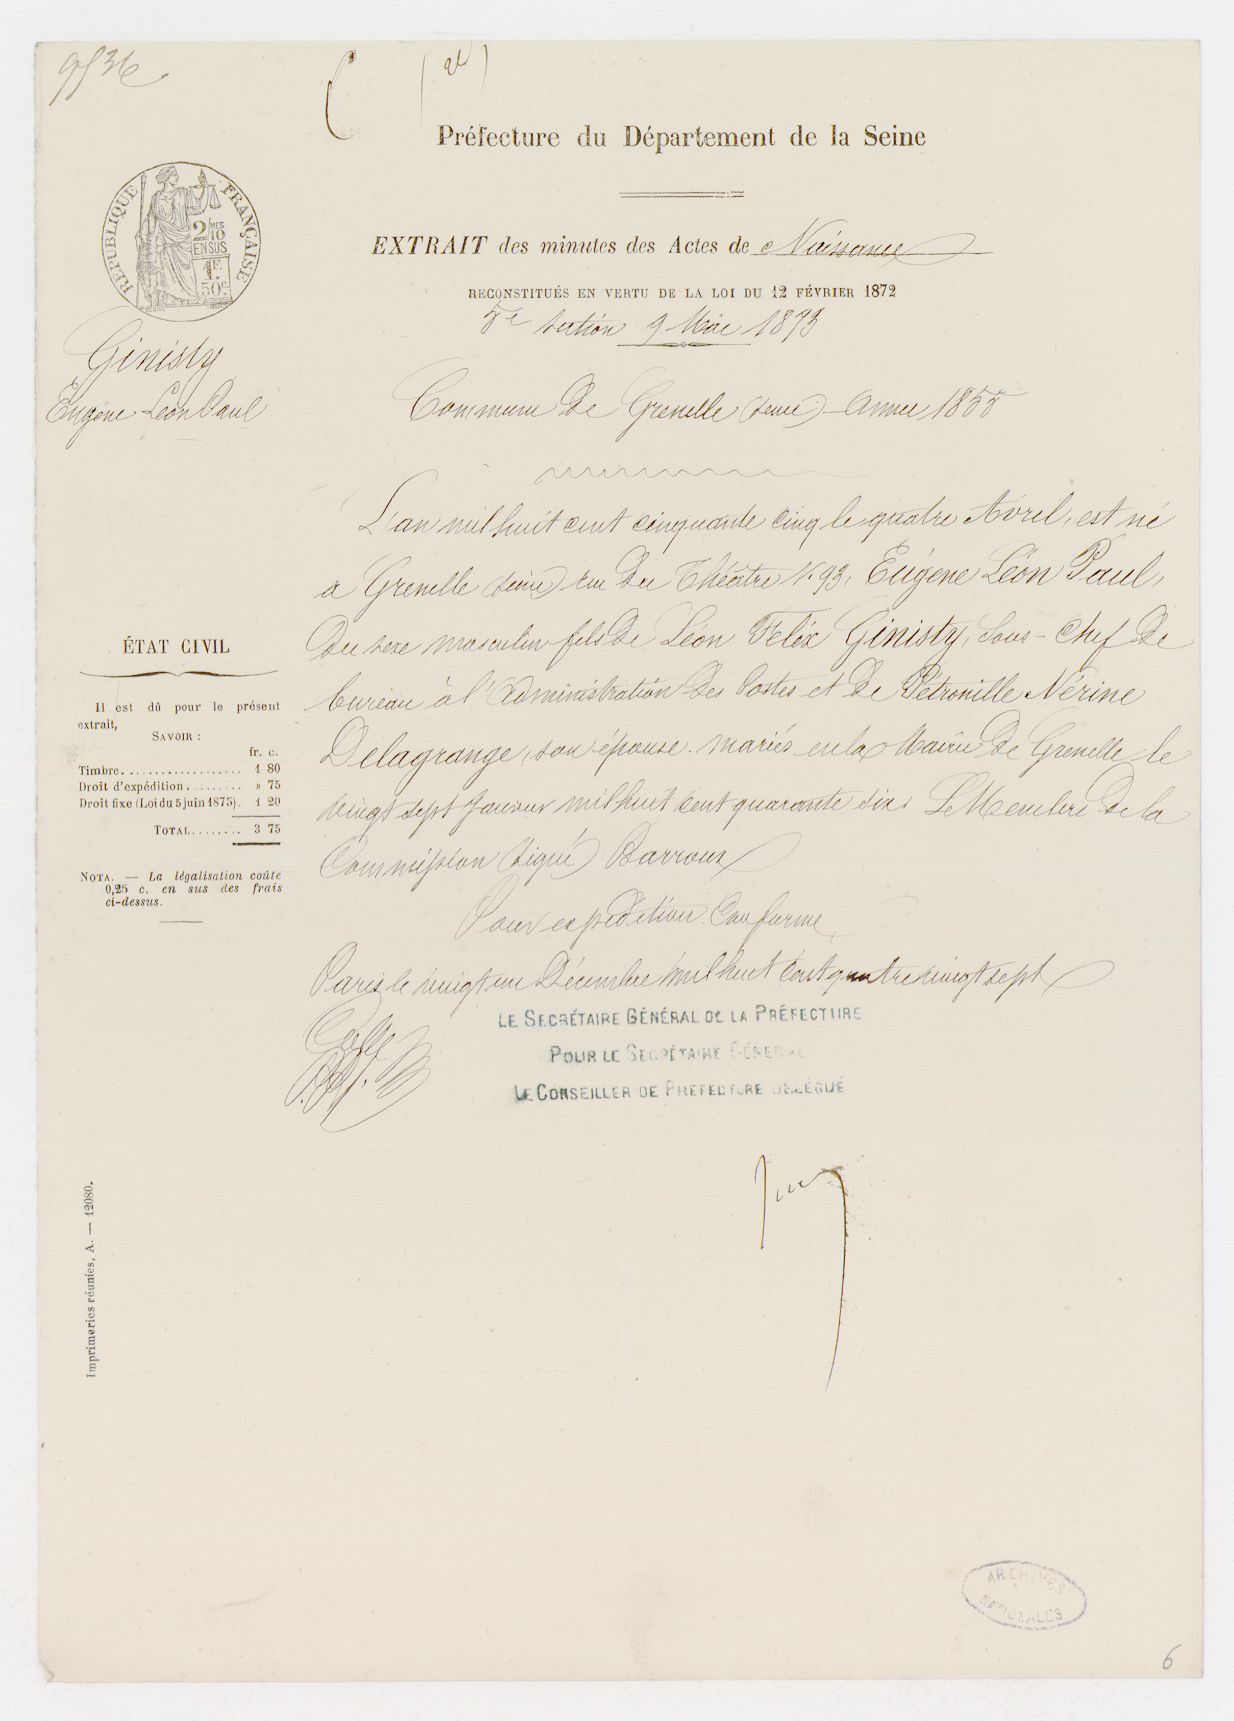 9536
Préfecture du Département de la Seine
RÉPUBLIQUE FRANÇAISE
2/10MES
EN SUS
1F.
50c.
EXTRAIT des minutes des Actes de Naissance
RECONSTITUÉS EN VERTU DE LA LOI DU 12 FÉVRIER 1872
5e section 9 Mai 1873
Ginisty
Eugène Léon Paul
Commune de Grenelle (Seine) - Année 1855
L'an mil huit cent cinquante cinq le quatre Avril, est né
à Grenelle (Seine) rue du Théâtre N. 93, Eugène Léon Paul,
du sexe masculin fils de Léon Felix Ginisty, Sous-Chef de
bureau à l'administration des Postes et de Pétronille Nérine
Delagrange, son épouse. mariés en la Mairie de Grenelle le
vingt sept Janvier mil huit cent quarante six. Le Membre de la
Commission (Signé) Barroux
Pour expédition Conforme,
Paris le vingt un Décembre mil huit cent quatre vingt sept
LE SECRÉTAIRE GÉNÉRAL DE LA PRÉFECTURE
POUR LE SECRÉTAIRE GÉNÉRAL
LE CONSEILLER DE PRÉFECTURE DÉLÉGUÉ
ÉTAT CIVIL
Il est dû pour le présent
extrait,
SAVOIR :
fr. c.
Timbre................... 1 80
Droit d'expédition......... » 75
Droit fixe (Loi du 5 juin 1875). 1 20
TOTAL........ 3 75
NOTA. — La légalisation coûte
0,25 c. en sus des frais
ci-dessus.
Imprimeries réunies, A. — 12080.
ARCHIVES
NATIONALES
6